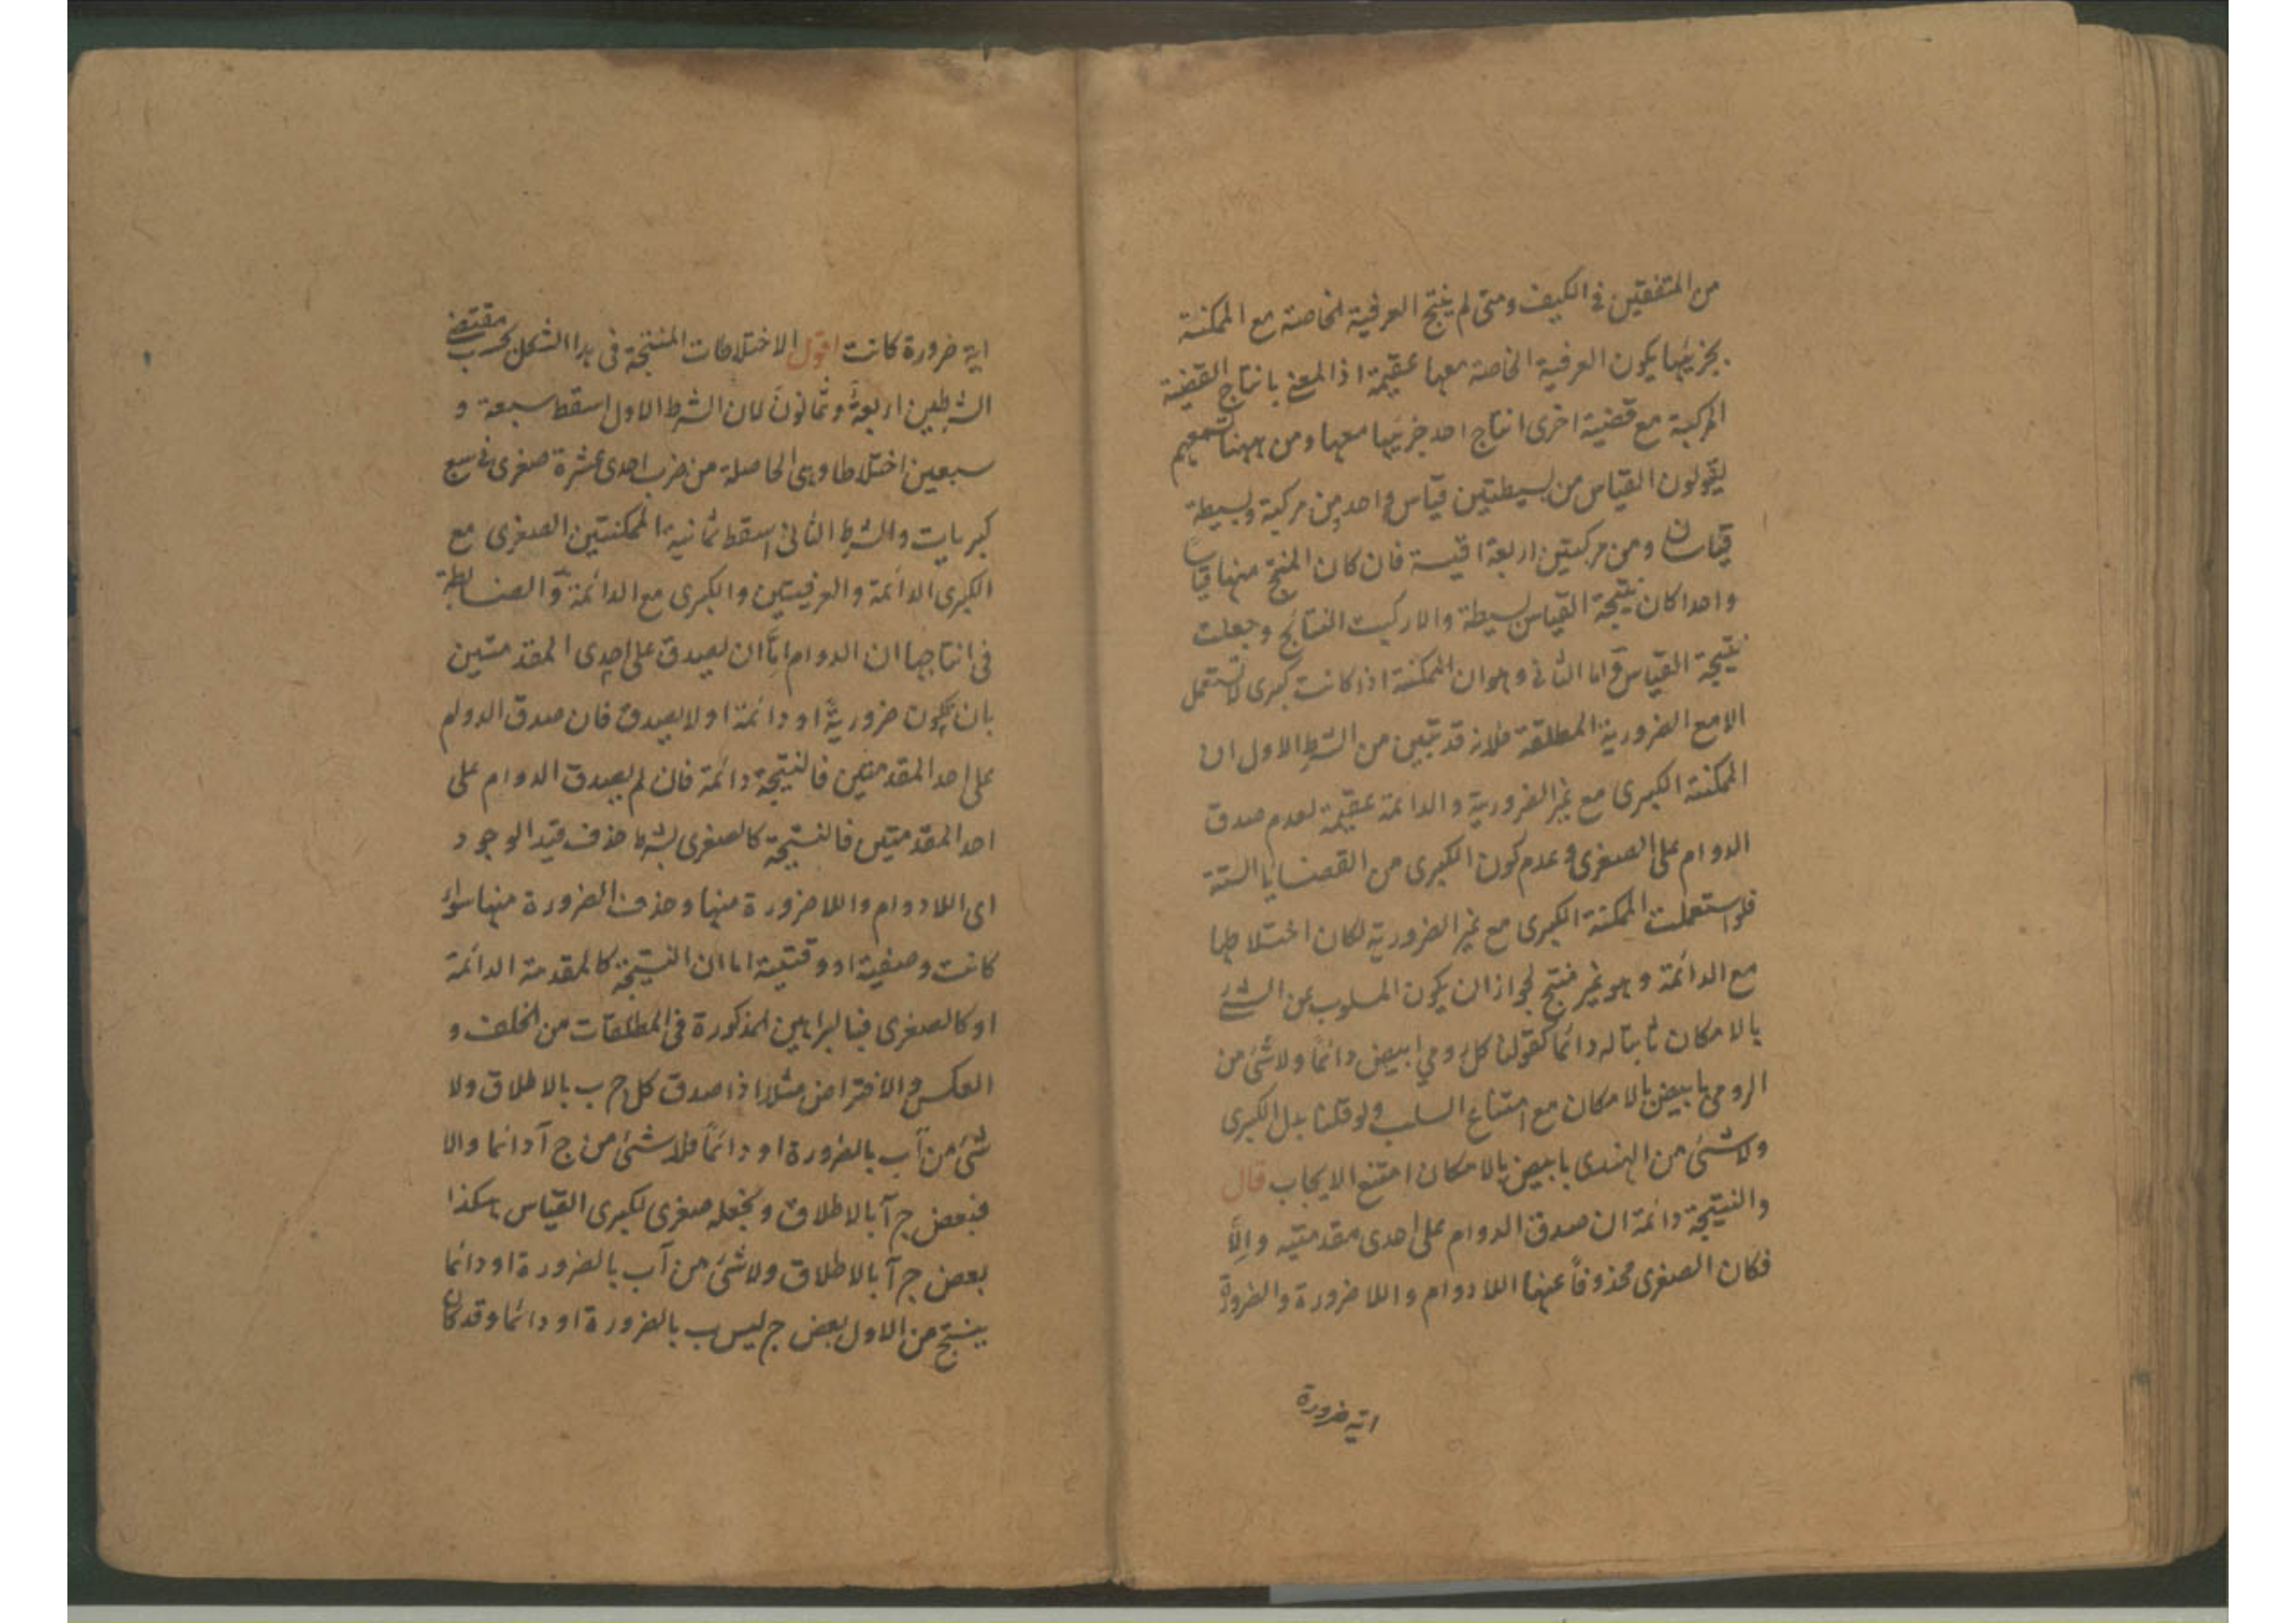 من المتفقتين في الكيف ومتى لم ينتج العرفية الخاصة مع الممكنة
بجزئيها يكون العرفية الخاصة معها عقيمة اذ المعنى بانتاج القضية
المركبة مع قضية اخرى انتاج احد جزئيها معها ومن ههنا تسمعهم
يقولون القياس من بسيطتين قياس واحد ومن مركبة وبسيطة
قياسان ومن مركبتين اربعة اقيسة فان كان المنتج منها قياسا
واحدا كان نتيجة القياس بسيطة والا ركبت النتائج وجعلت
نتيجة القياس واما الثاني وهو ان الممكنة اذا كانت كبرى لا تستعمل
الا مع الضرورية المطلقة فلانه قد تبين من الشرط الاول ان
الممكنة الكبرى مع غير الضرورية والدائمة عقيمة لعدم صدق
الدوام على الصغرى وعدم كون الكبرى من القضايا الستة
فلو استعملت الممكنة الكبرى مع غير الضرورية لكان اختلاطها
مع الدائمة وهو غير منتج لجواز ان يكون المسلوب عن الشئ
بالامكان ثابتا له دائما كقولنا كل رومي ابيض دائما ولا شئ من
الرومي بابيض بالامكان مع امتناع السلب ولو قلنا بدل الكبرى
ولا شئ من الهندى بابيض بالامكان امتنع الايجاب قال
والنتيجة دائمة ان صدق الدوام على احدى مقدمتيه والا
فكان الصغرى محذوفا عنها اللادوام واللاضرورة والضرورة
اية ضرورة
اية ضرورة كانت اقول الاختلاطات المنتجة فى هذا الشكل بحسب مقتضى
الشرطين اربعة وثمانون لان الشرط الاول اسقط سبعة و
سبعين اختلاطا وهى الحاصلة من ضرب احدى عشرة صغرى في سبع
كبريات والشرط الثانى اسقط ثمانية الممكنتين الصغرى مع
الكبرى الدائمة والعرفيتين والكبرى مع الدائمة والضابطة
فى انتاجها ان الدوام اما ان يصدق على احدى المقدمتين
بان تكون ضرورية او دائمة او لا يصدق فان صدق الدوام
على احد المقدمتين فالنتيجة دائمة فان لم يصدق الدوام على
احد المقدمتين فالنتيجة كالصغرى بشرط حذف قيد الوجود
اى اللادوام واللاضرورة منها وحذف الضرورة منها سواء
كانت وصفية او وقتية اما ان النتيجة كالمقدمة الدائمة
او كالصغرى فبالبراهين المذكورة فى المطلقات من الخلف و
العكس والافتراض مثلا اذا صدق كل ج ب بالاطلاق ولا
شئ من آ ب بالضرورة او دائما فلا شئ من ج آ دائما والا
فبعض ج آ بالاطلاق ونجعله صغرى لكبرى القياس هكذا
بعض ج آ بالاطلاق ولا شئ من آ ب بالضرورة او دائما
ينتج من الاول بعض ج ليس ب بالضرورة او دائما وقد كان